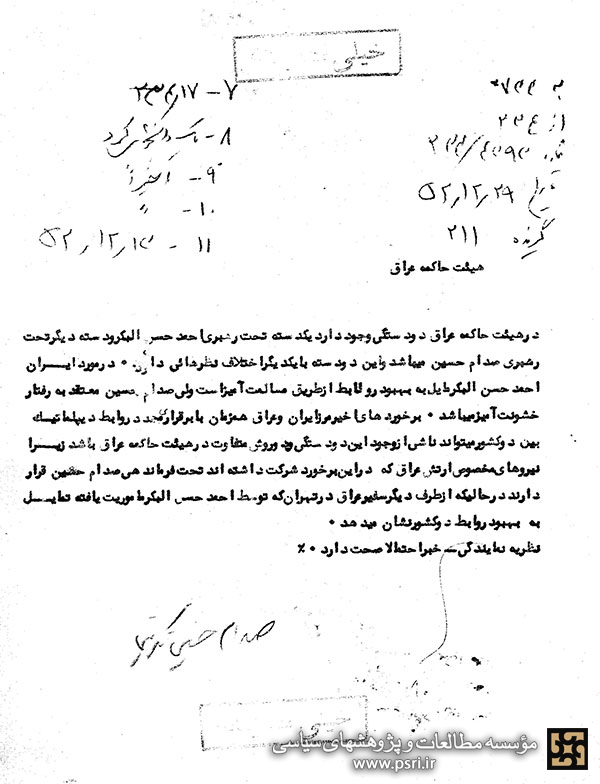 خیلی
به ۷۳۳۰
از ۲۳ع
۳۳۲/۴۰۹۳
تاریخ ۵۲٫۱۲٫۲۹
گیرنده ۲۱۱
۷-
۸- یک دانشجوی کرد
۹- اخیراً
۱۰- "
۱۱- ۵۲٫۱۲٫۱۳
هیئت حاکمه عراق
در هیئت حاکمه عراق دو دستگی وجود دارد یکدسته تحت رهبری احمد حسن البکر و دسته دیگر تحت
رهبری صدام حسین میباشد و این دو دسته با یکدیگر اختلاف نظرهائی دارند ۰ در مورد ایــران
احمد حسن البکر مایل به بهبود روابط از طریق مسالمت آمیز است ولی صدام حسین معتقد به رفتار
خشونت آمیز میباشد ۰ برخوردهای اخیر مرز ایران و عراق همزمان با برقراری مجدد روابط دیپلماتیک
بین دو کشور میتواند ناشی از وجود این دو دستگی و دو روش متفاوت در هیئت حاکمه عراق باشد زیــرا
نیروهای مخصوص ارتش عراق که در این برخورد شرکت داشته اند تحت فرماندهی صدام حسین قرار
دارند در حالیکه از طرف دیگر سفیر عراق در تهران که توسط احمد حسن البکر ماموریت یافته تمایـــل
به بهبود روابط دو کشور نشان میدهد ۰
نظریه نمایندگی ــ خبر احتمالا صحت دارد ۰ ٪
صدام حسین تکریتی
خیلی
مؤسسه مطالعات و پژوهشهای سیاسی
www.psri.ir